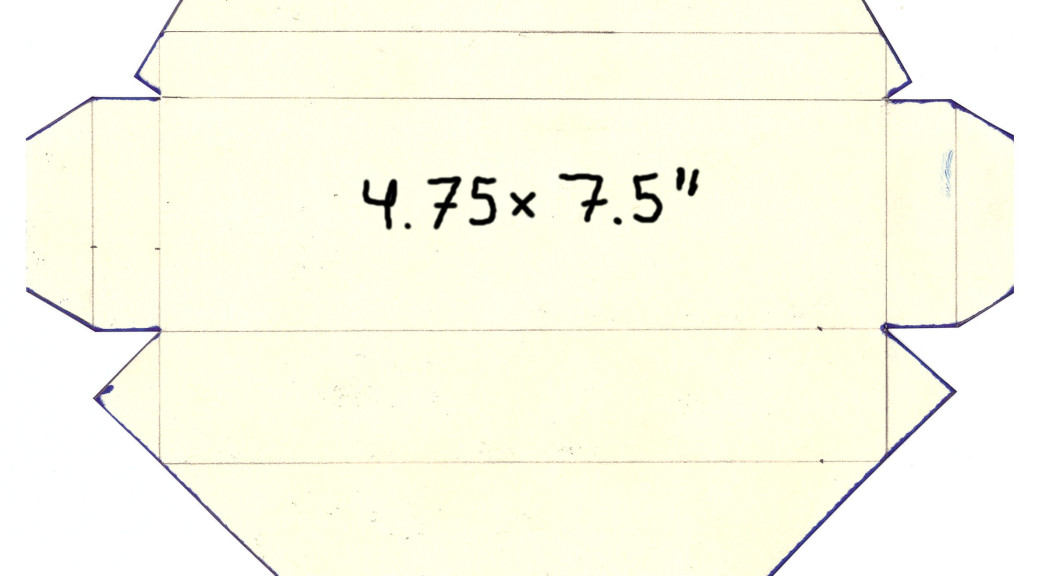 4.75x 7.5"